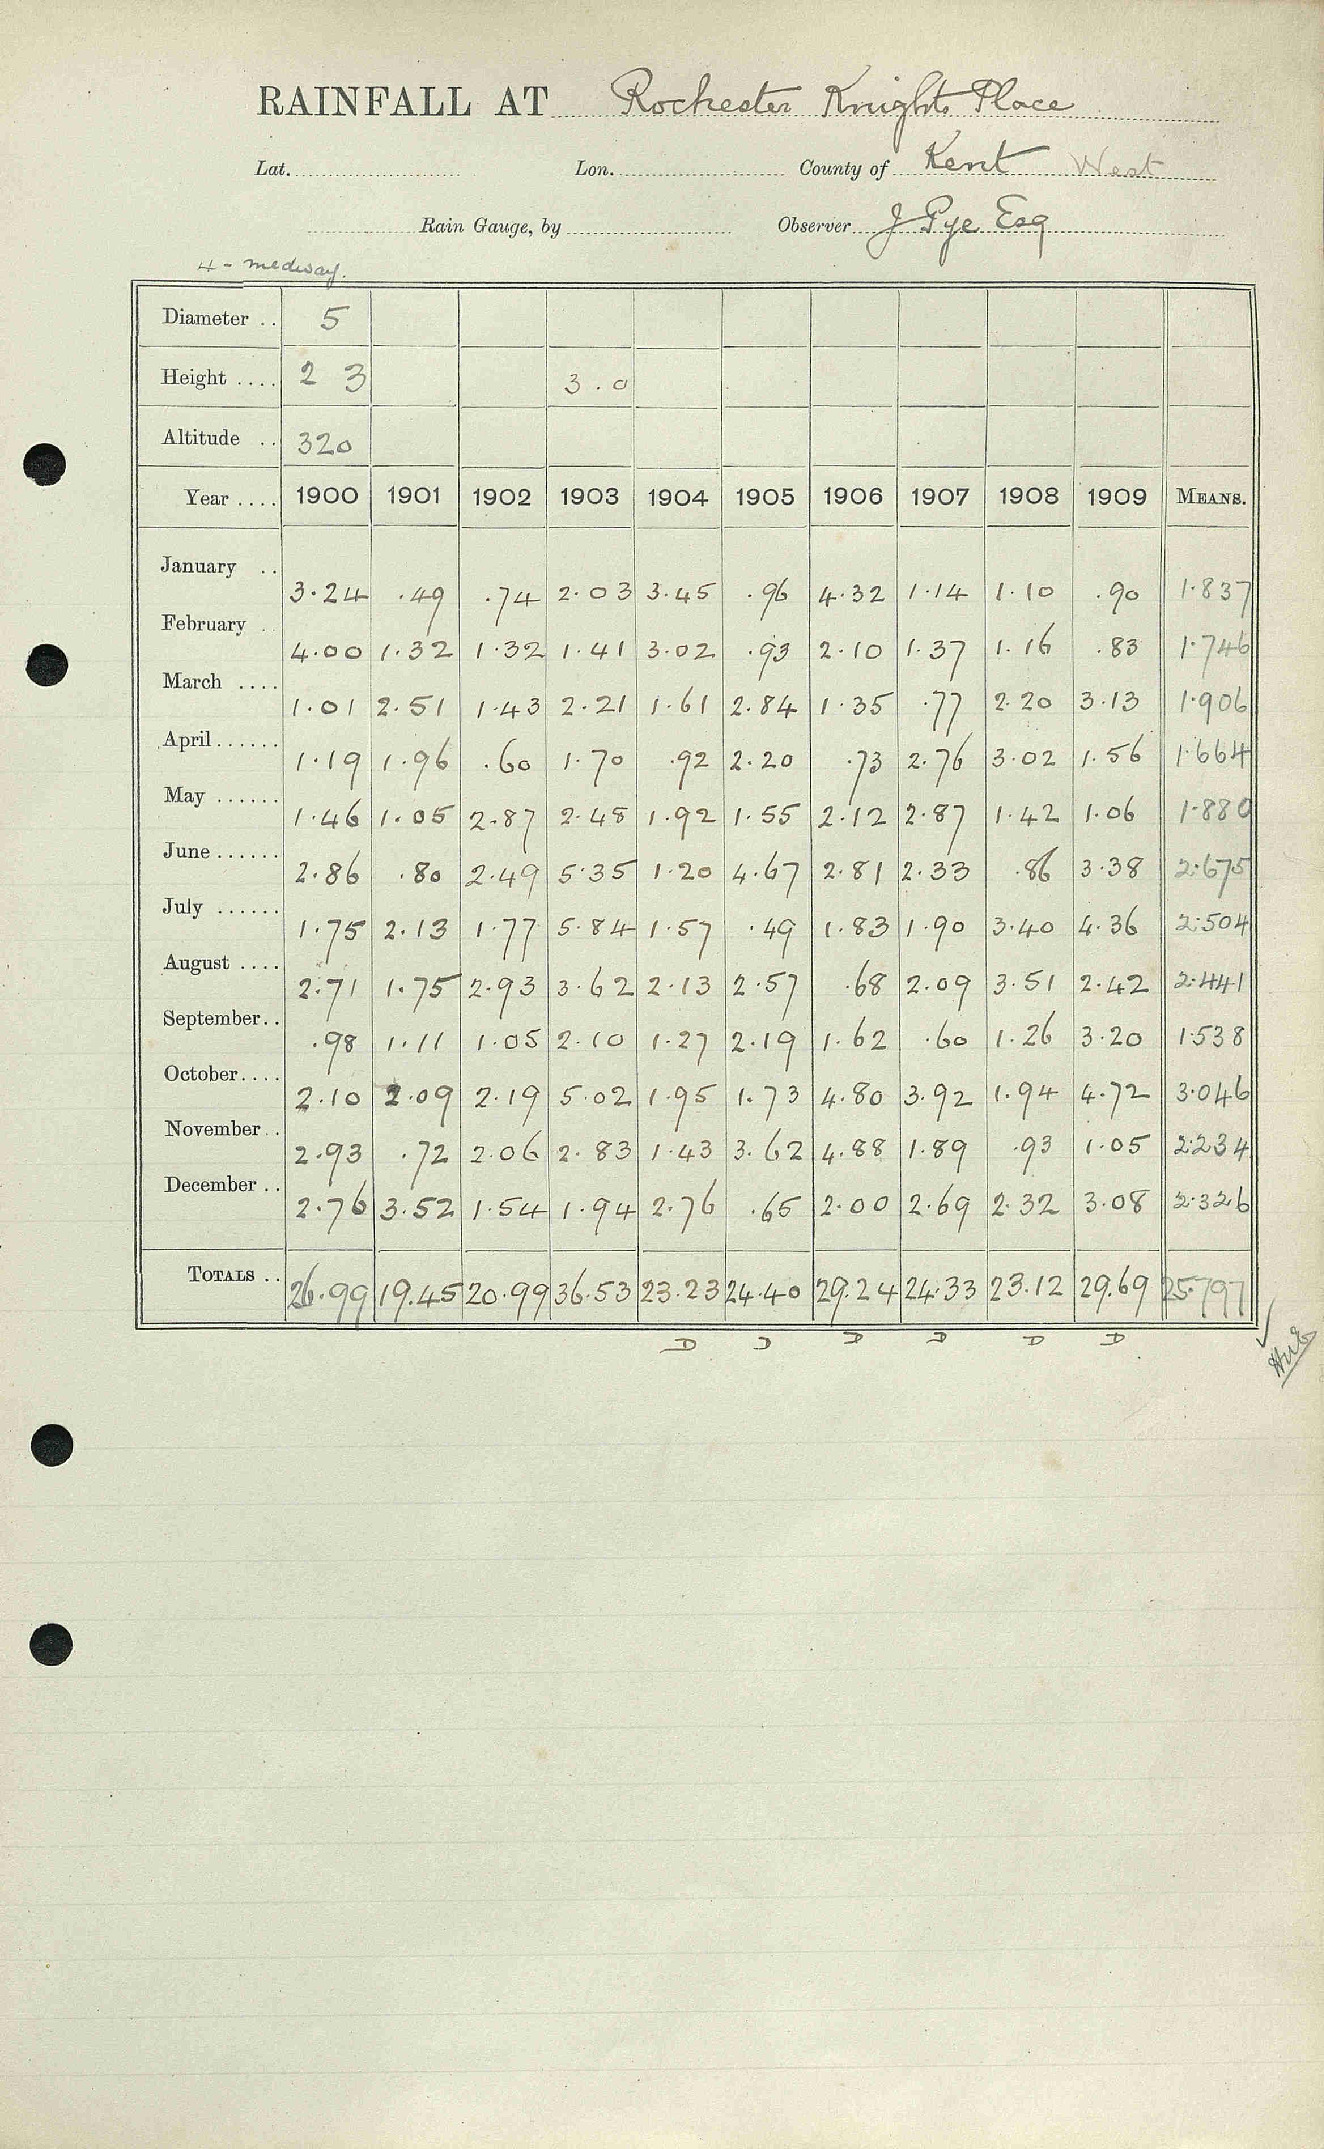 RAINFALL AT Rochester Knights Place
Lat. Lon. County of Kent West
Rain Gauge, by Observer J Pye Esq
4 - medway.
Diameter .. 5
Height .... 2 3 3.0
Altitude .. 320
Year .... 1900 1901 1902 1903 1904 1905 1906 1907 1908 1909 MEANS.
January .. 3.24 .49 .74 2.03 3.45 .96 4.32 1.14 1.10 .90 1.837
February . 4.00 1.32 1.32 1.41 3.02 .93 2.10 1.37 1.16 .83 1.746
March .... 1.01 2.51 1.43 2.21 1.61 2.84 1.35 .77 2.20 3.13 1.906
April...... 1.19 1.96 .60 1.70 .92 2.20 .73 2.76 3.02 1.56 1.664
May ...... 1.46 1.05 2.87 2.48 1.92 1.55 2.12 2.87 1.42 1.06 1.880
June...... 2.86 .80 2.49 5.35 1.20 4.67 2.81 2.33 .86 3.38 2.675
July ...... 1.75 2.13 1.77 5.84 1.57 .49 1.83 1.90 3.40 4.36 2.504
August .... 2.71 1.75 2.93 3.62 2.13 2.57 .68 2.09 3.51 2.42 2.441
September.. .98 1.11 1.05 2.10 1.27 2.19 1.62 .60 1.26 3.20 1.538
October.... 2.10 2.09 2.19 5.02 1.95 1.73 4.80 3.92 1.94 4.72 3.046
November .. 2.93 .72 2.06 2.83 1.43 3.62 4.88 1.89 .93 1.05 2.234
December .. 2.76 3.52 1.54 1.94 2.76 .65 2.00 2.69 2.32 3.08 2.326
TOTALS .. 26.99 19.45 20.99 36.53 23.23 24.40 29.24 24.33 23.12 29.69 25.797
D D D D D D